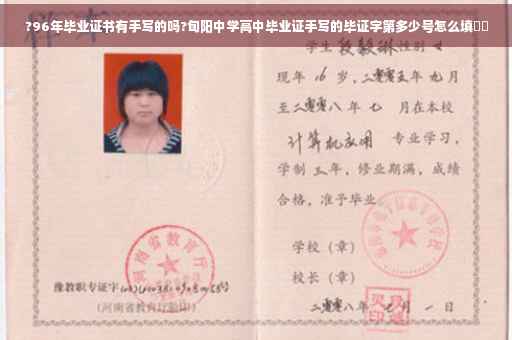 ?96年毕业证书有手写的吗?旬阳中学高中毕业证手写的毕证字第多少号怎么填
学生段毅琳性别女
现年16岁，二零零五年九月
至二零零八年七月在本校
计算机应用 专业学习，
学制三年，修业期满，成绩
合格，准予毕业
学校（章）
校长（章）
二零零八年七月一日
河南省教育厅
豫教职专证字
（河南省教育厅验印）